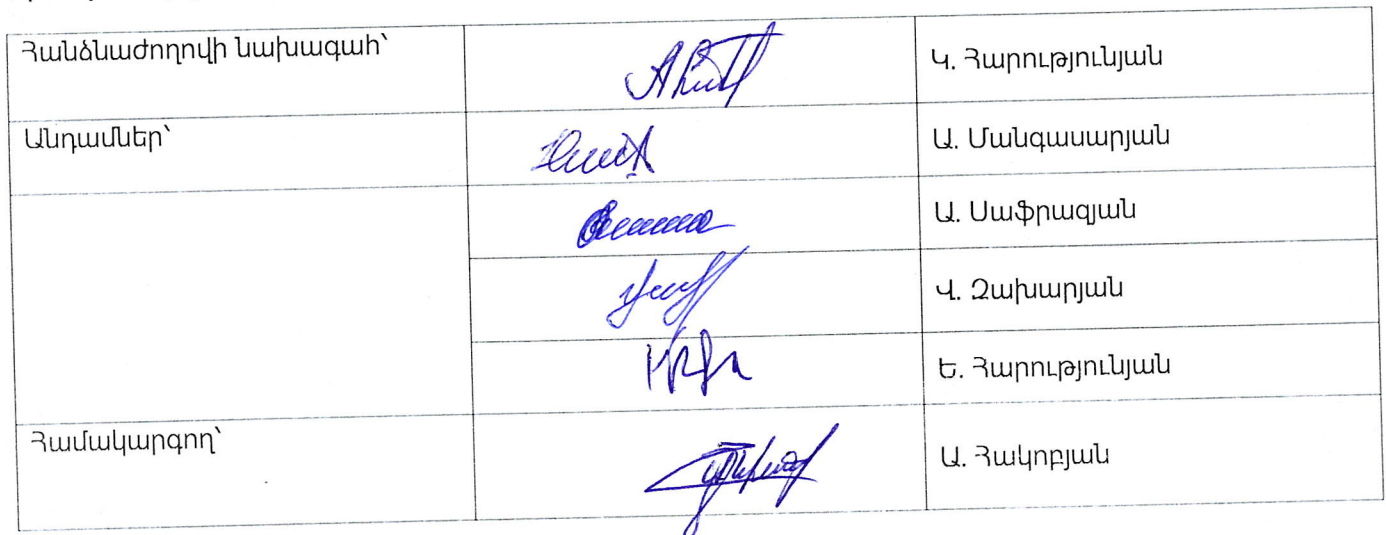 Հանձնաժողովի նախագահ՝
Կ. Հարությունյան
Անդամներ՝
Ա. Մանգասարյան
Ա. Սաֆրազյան
Վ. Զախարյան
Ե. Հարությունյան
Համակարգող՝
Ա. Հակոբյան